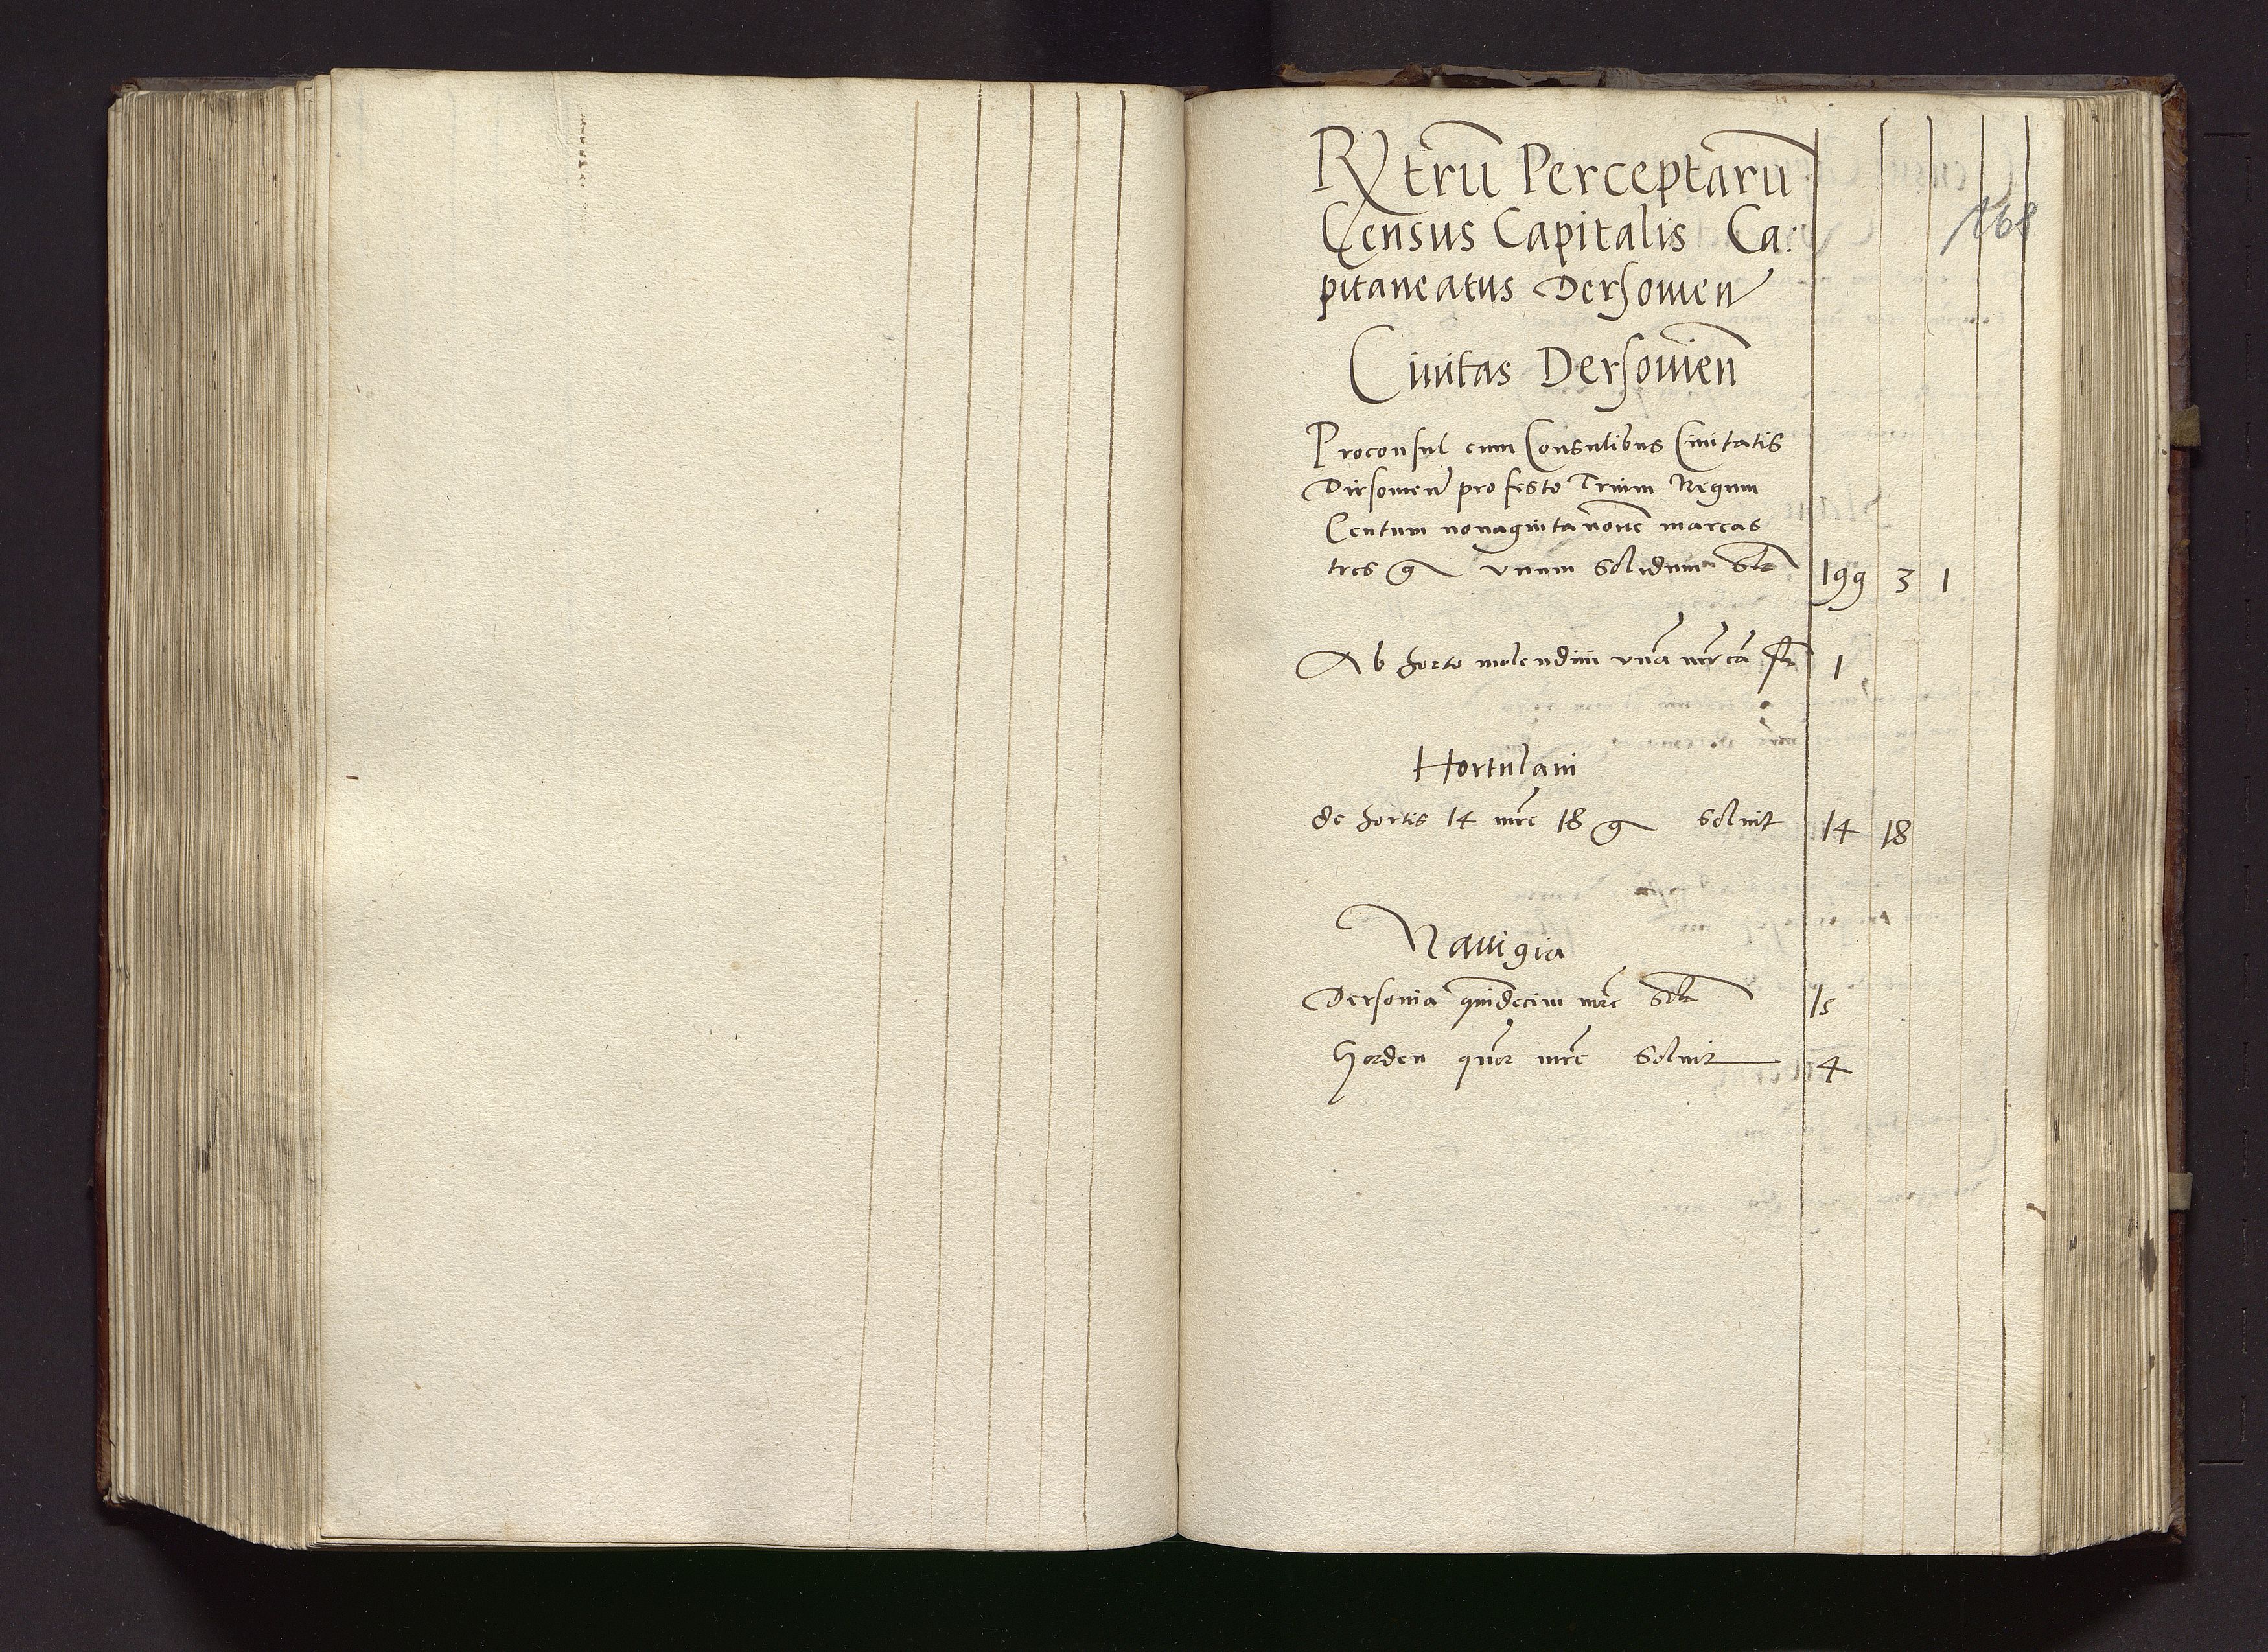 Rɇtrū Perceptarū
Census Capitalis Ca:
pitaneatus Dersouien
168
Ciuitas Dersouien̄
Proconsul cum Consulibus Ciuitatis
Dirsouien pro festo Trium Regum
Centum nonaginta nouē marcas
tres g vnum solidum solt 199 3 1
Ab horto molendini vnā mrcā solt 1
Hortulani
de hortis 14 mrc 18 g soluit 14 18
Nauigia
Dersouia quindecim mrc solt 15
Gorden quor mrc soluit 4